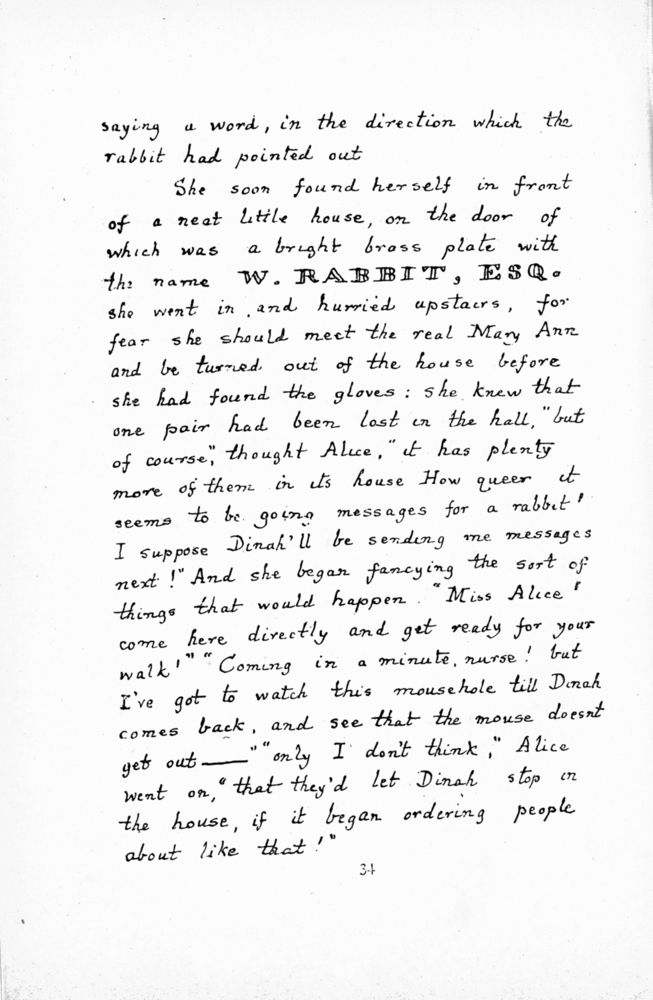 saying a word, in the direction which the
rabbit had pointed out
She soon found herself in front
of a neat little house, on the door of
which was a bright brass plate with
the name W. RABBIT, ESQ.
she went in, and hurried upstairs, for
fear she should meet the real Mary Ann
and be turned out of the house before
she had found the gloves: she knew that
one pair had been lost in the hall, "but
of course," thought Alice, "it has plenty
more of them in its house How queer it
seems to be going messages for a rabbit!
I suppose Dinah'll be sending me messages
next!" And she began fancying the sort of
things that would happen. "Miss Alice!
come here directly and get ready for your
walk!" "Coming in a minute, nurse! but
I've got to watch this mousehole till Dinah
comes back, and see that the mouse doesnt
get out——" "only I don't think," Alice
went on, "that they'd let Dinah stop in
the house, if it began ordering people
about like that!"
34